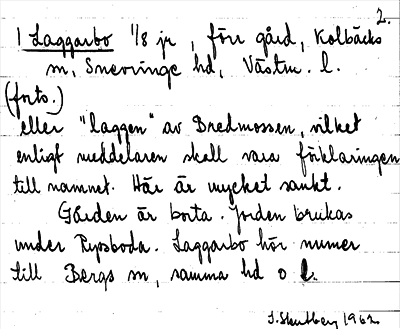 2.
1 Laggarbo 1/8 jr, förr gård, Kolbäcks
sn, Snevringe hd, Västm. l.
(forts.)
eller "laggen" av Bredmossen, vilket
enligt meddelaren skall vara förklaringen
till namnet. Här är mycket sankt.
Gården är borta. Jorden brukas
under Rysboda. Laggarbo hör numer
till Bergs sn, samma hd o l.
1962